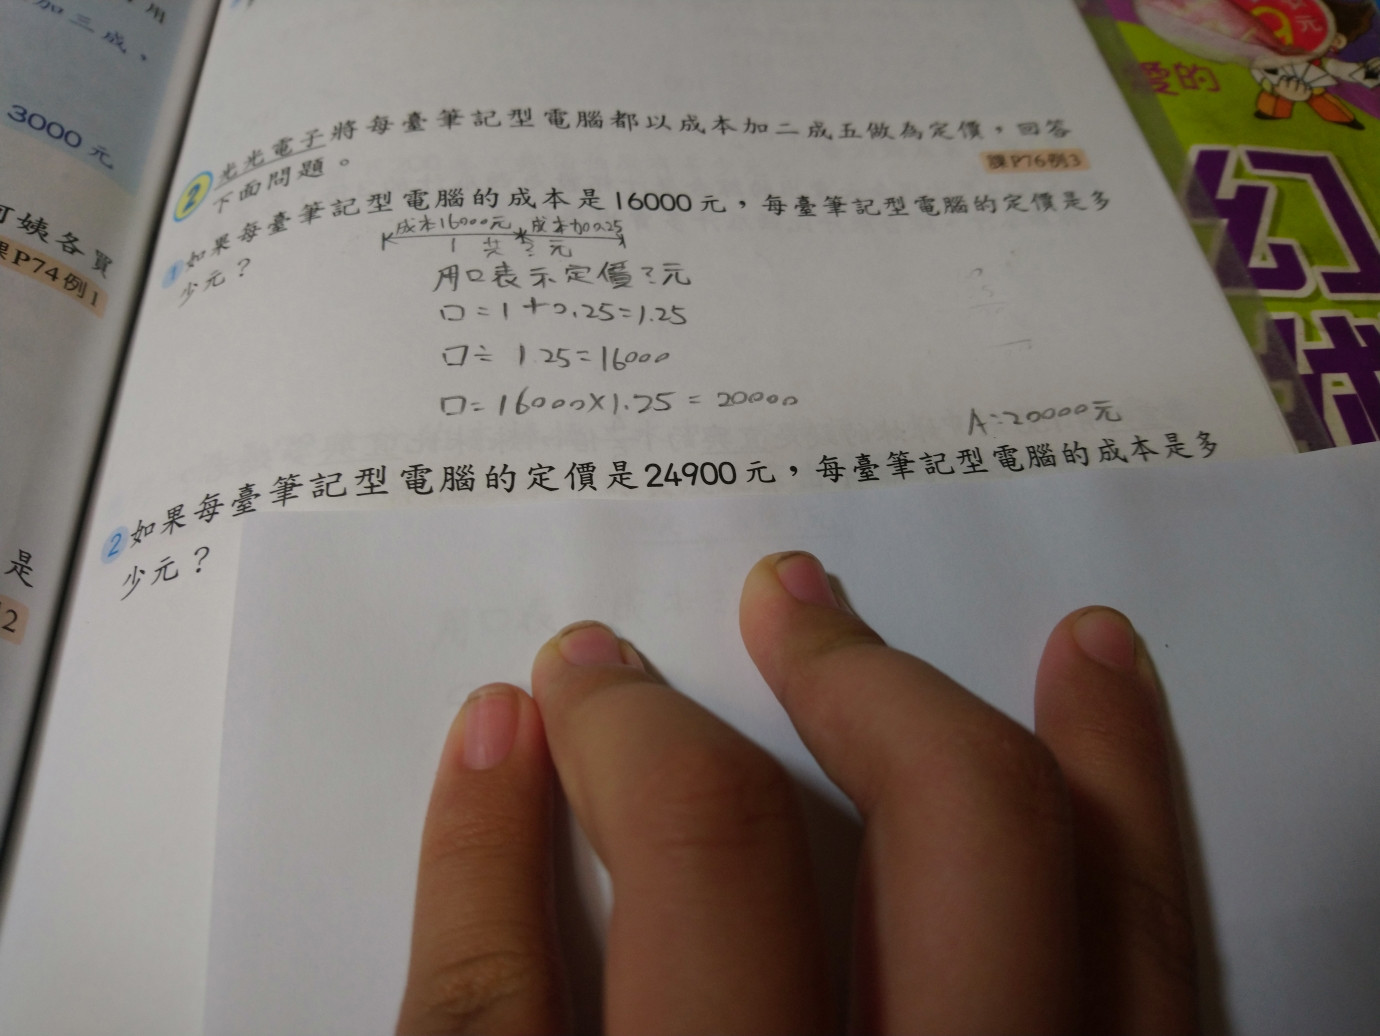 用
加三成、
3000元
阿姨各買
課P74例1
是
2
2 光光電子將每臺筆記型電腦都以成本加二成五做為定價，回答
下面問題。
課P76例3
1 如果每臺筆記型電腦的成本是16000元，每臺筆記型電腦的定價是多
少元？
成本16000元 成本加0.25
1 共？元
用口表示定價？元
口=1+0.25=1.25
口÷1.25=16000
口=16000×1.25=20000
A:20000元
2 如果每臺筆記型電腦的定價是24900元，每臺筆記型電腦的成本是多
少元？
愛的
元
幻